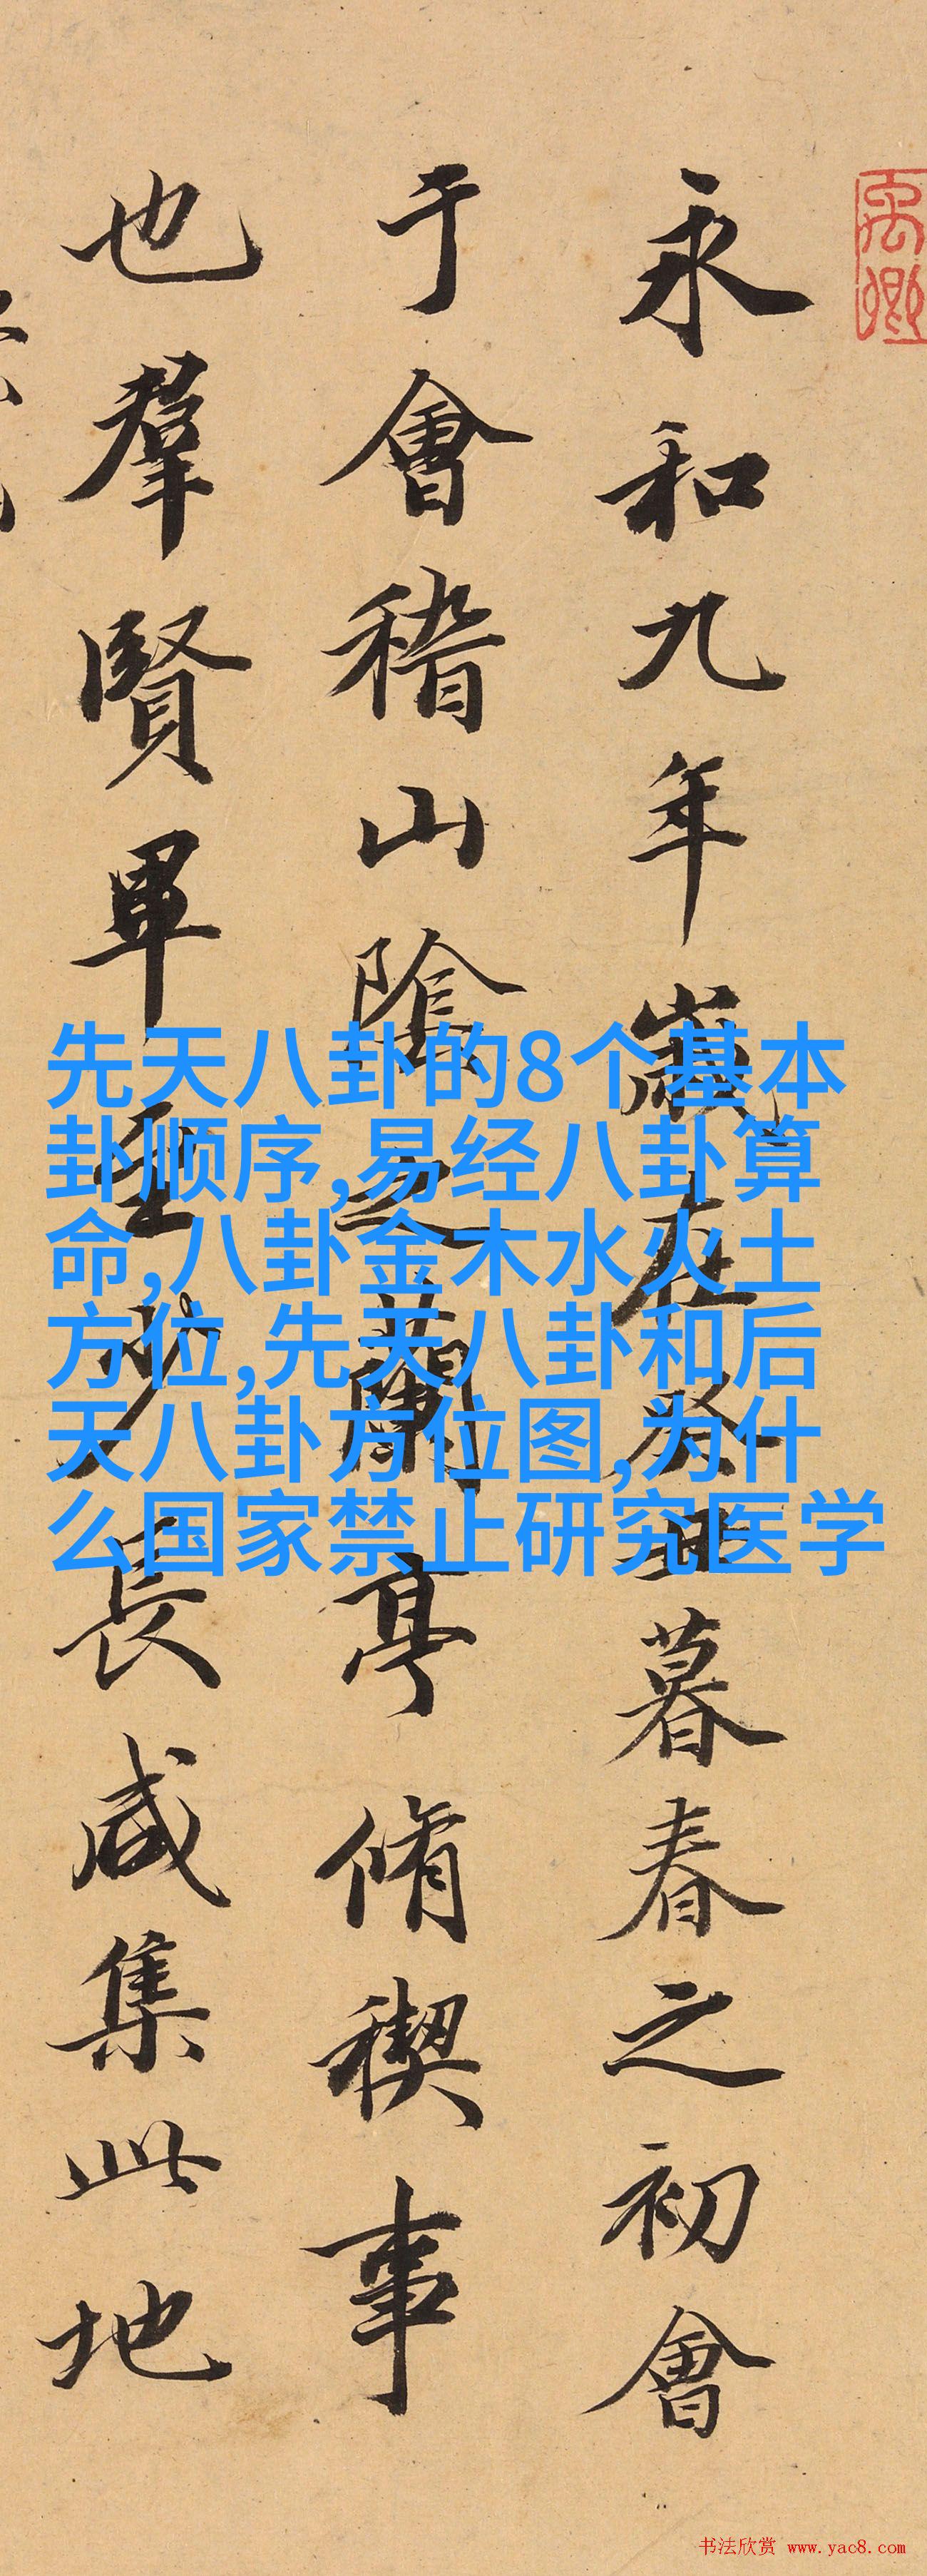 永和九年歲在癸丑暮春之初會
于會稽山陰之蘭亭脩稧事
也羣賢畢至少長咸集此地
先天八卦的8个基本
卦顺序,易经八卦算
命,八卦金木水火土
方位,先天八卦和后
天八卦方位图,为什
么国家禁止研究医学
书法欣赏 www.yac8.com